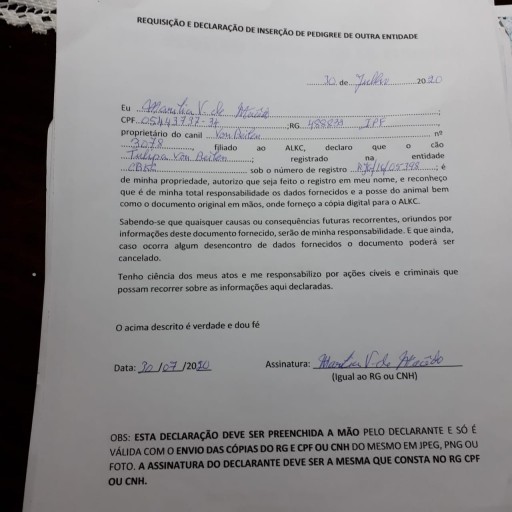 REQUISIÇÃO E DECLARAÇÃO DE INSERÇÃO DE PEDIGREE DE OUTRA ENTIDADE
30 de Julho 2020
Eu Marilia V. de
CPF RG IPF
proprietário do canil Von nº
3078, filiado ao ALKC, declaro que o cão
Von registrado na entidade
CBKC sob o número de registro é
de minha propriedade, autorizo que seja feito o registro em meu nome, e reconheço
que é de minha total responsabilidade os dados fornecidos e a posse do animal bem
como o documento original em mãos, onde forneço a cópia digital para o ALKC.
Sabendo-se que quaisquer causas ou consequências futuras recorrentes, oriundos por
informações deste documento fornecido, serão de minha responsabilidade. E que ainda,
caso ocorra algum desencontro de dados fornecidos o documento poderá ser
cancelado.
Tenho ciência dos meus atos e me responsabilizo por ações cíveis e criminais que
possam recorrer sobre as informações aqui declaradas.
O acima descrito é verdade e dou fé
Data: 30/07/2020 Assinatura: Marilia V. de
(Igual ao RG ou CNH)
OBS: ESTA DECLARAÇÃO DEVE SER PREENCHIDA A MÃO PELO DECLARANTE E SÓ É
VÁLIDA COM O ENVIO DAS CÓPIAS DO RG E CPF OU CNH DO MESMO EM JPEG, PNG OU
FOTO. A ASSINATURA DO DECLARANTE DEVE SER A MESMA QUE CONSTA NO RG CPF
OU CNH.